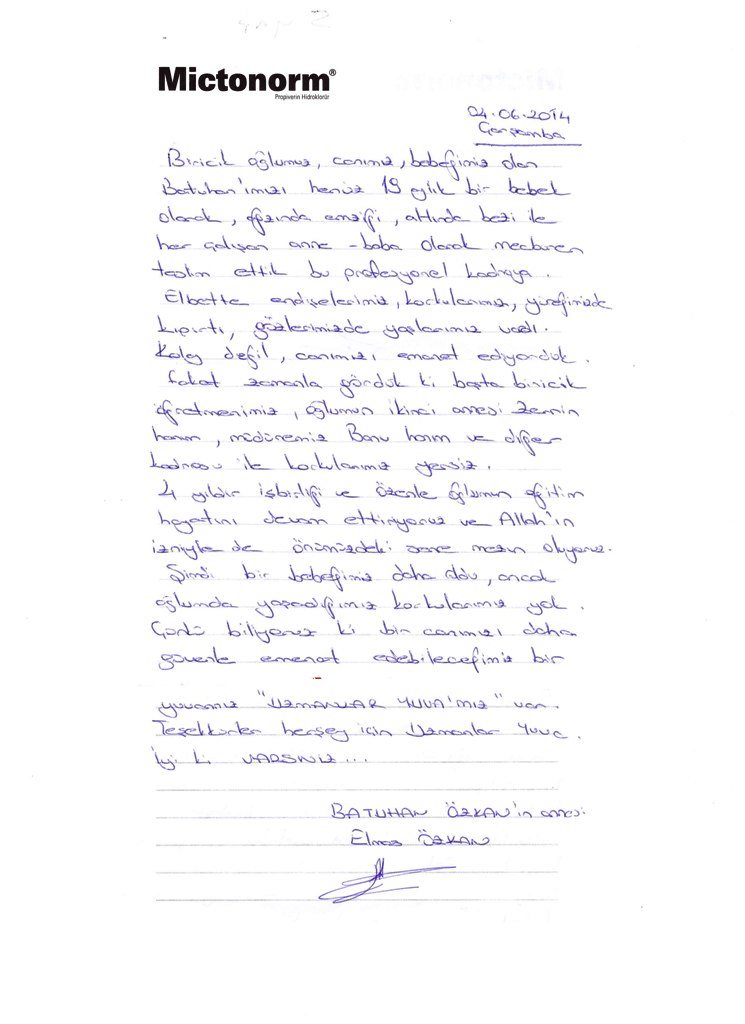 Mictonorm®
Propiverin Hidroklorür
04.06.2014
Çarşamba
Biricik oğlumuz, canımız, bebeğimiz olan
Batuhan'ımızı henüz 19 aylık bir bebek
olarak, ağzında emziği, altında bezi ile
her çalışan anne-baba olarak mecburen
teslim ettik bu profesyonel kadroya.
Elbette endişelerimiz, korkularımız, yüreğimizde
kıpırtı, gözlerimizde yaşlarımız vardı.
Kolay değil, canımızı emanet ediyorduk.
Fakat zamanla gördük ki başta biricik
öğretmenimiz, oğlumun ikinci annesi Zerrin
hanım, müdüremiz Banu hanım ve diğer
kadrosu ile korkularımız yersiz.
4 yıldır işbirliği ve özenle oğlumun eğitim
hayatını devam ettiriyoruz ve Allah'ın
izniyle de önümüzdeki sene mezun oluyoruz.
Şimdi bir bebeğimiz daha oldu, ancak
oğlumda yaşadığımız korkularımız yok.
Çünkü biliyoruz ki bir canımızı daha
güvenle emanet edebileceğimiz bir
yuvamız "UZMANLAR YUVA'mız" var.
Teşekkürler herşey için Uzmanlar Yuva.
İyi ki VARSINIZ...
BATUHAN ÖZKAN'ın annesi
Elmas ÖZKAN